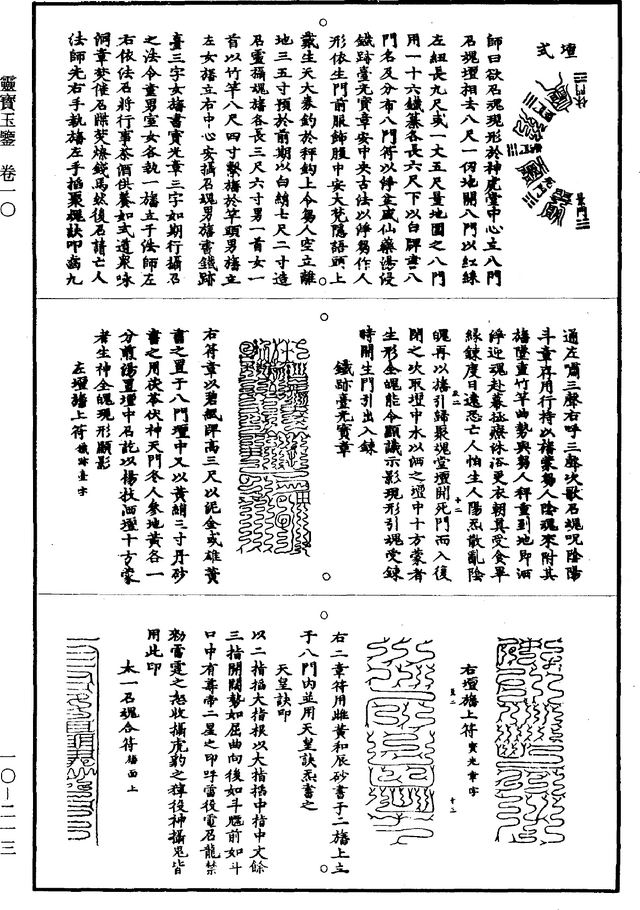 壇式
師曰欲召魂現形於神虎堂中心立八門
召魂壇相去八尺一仞地開八門以紅綠
左紐長九尺或一丈五尺量地圍之八門
用一十六鐵纂各長六尺下以白牌書八
門名及分布八門符以淨盆盛仙藥湯浸
鐵跡臺光寶章安中央古法以淨芻作人
形依生門前服飾腹中安大梵隱語頭上
戴生天大券釣於秤鈎上令芻人空立離
地三五寸預於前期以白絹七尺二寸造
召靈攝魂旛各長三尺六寸男一首女一
首以竹竿八尺四寸繫旛於竿頭男旛立
左女旛立右中心安攝召魂男旛書鐵跡
臺三字女旛書寶光章三字如期行攝召
之法令童男室女各執一旛立于法師左
右依法召將行事茶酒供養如式道眾咏
洞章焚催召牒焚燎錢馬然後召請亡人
法師先右手執旛左手掐聚魂訣叩齒九
通左嘯三聲右呼三聲次歌召魂咒陰陽
斗章再用行持以旛蒙芻人陰魂來附其
旛墜重竹竿曲勢與芻人秤重到地即洒
淨迎魂赴幕拯療沐浴更衣朝真受食畢
緣鍊度日遠恐亡人怕生人陽炁散亂陰
魄再以旛引歸聚魂堂壇開死門而入復
閉之次取壇中水以洒之壇中十方蒙者
生形全魄能令顯識示影現形引魂受鍊
時開生門引出入鍊
鐵跡臺光寶章
右符章以碧紙牌高三尺以泥金或雄黃
書之置于八門壇中又以黃絹三寸丹砂
書之用茯苓伏神天門冬人參地黃各一
分煎湯置壇中召訖以楊枝洒壇十方蒙
者生神全魄現形顯影
左壇旛上符 鐵跡臺字
右壇旛上符 寶光章字
右二章符用雌黃和辰砂書于二旛上立
于八門內並用天皇訣炁書之
天皇訣印
以二指掐大指根以大指掐中指中文餘
三指開闊勢如屈曲向後如斗魁前如斗
口中有尊帝二星之印呼雷役電召龍禁
勑雷霆之怒收攝虎豹之獰役神攝鬼皆
用此印
太一召魂合符 旛面上
靈寶玉鑒 卷一〇
一〇－二一三